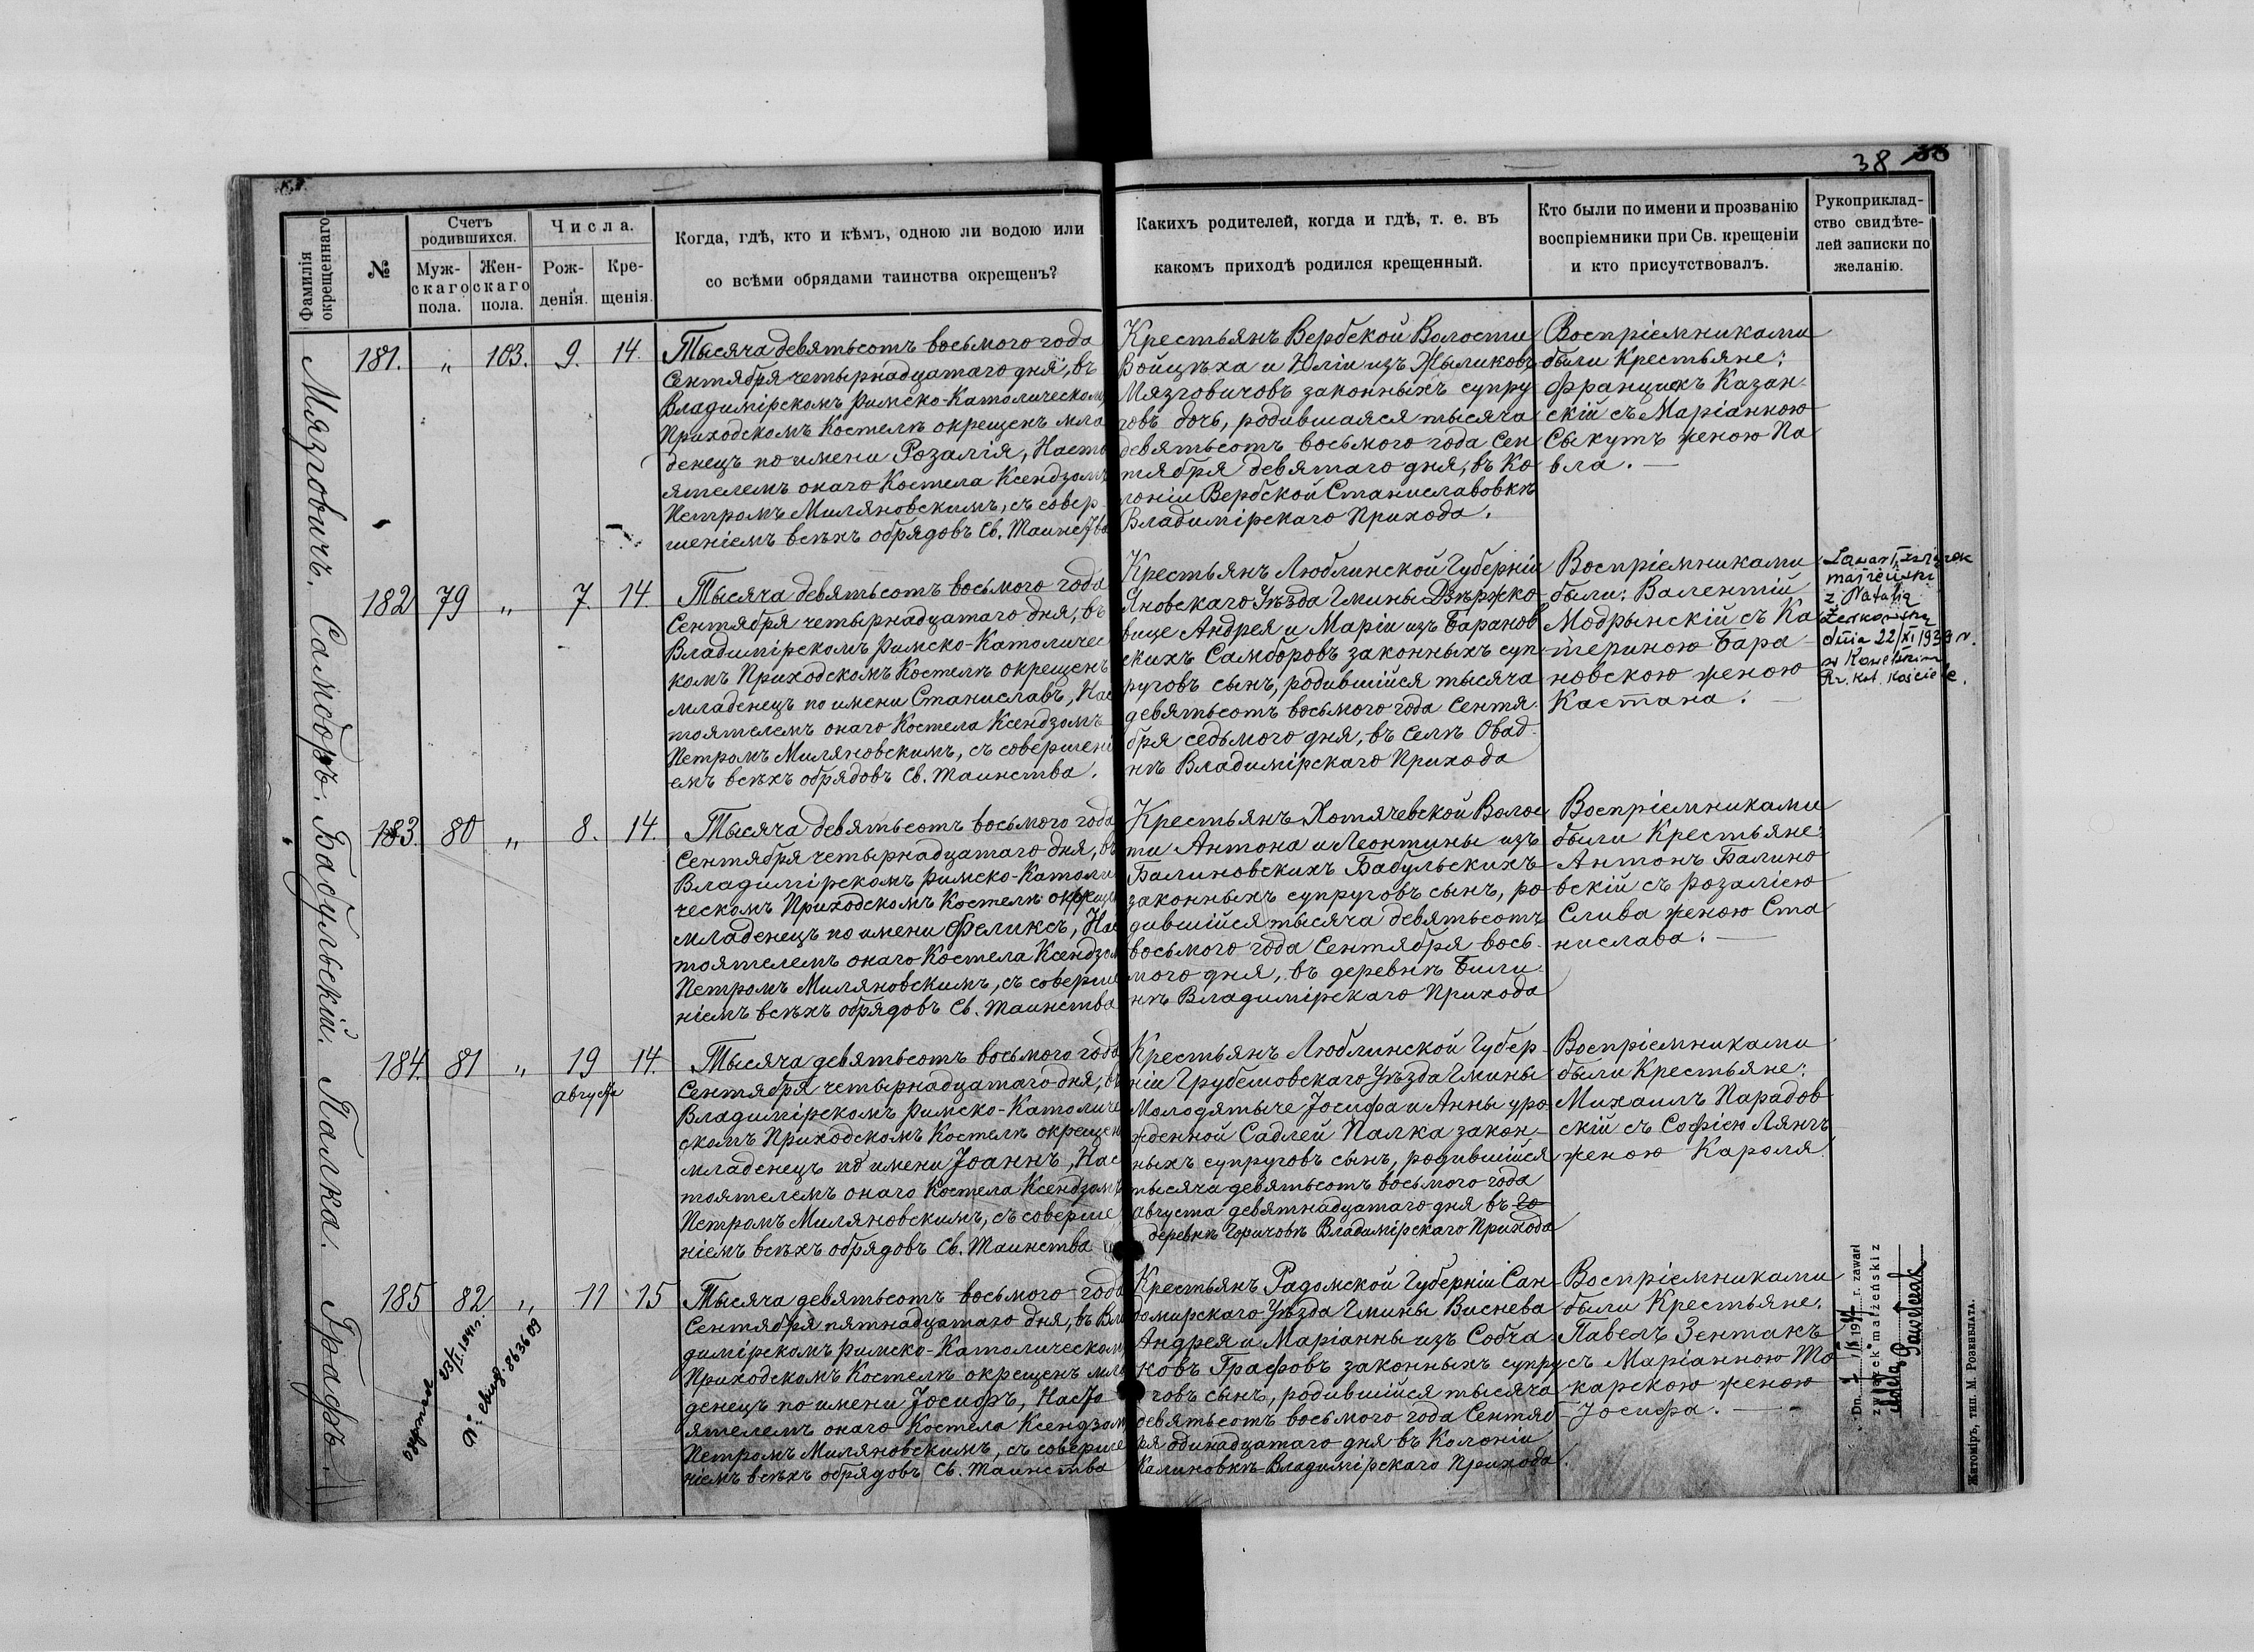 38
Фамилія
окрещеннаго
№
Счетъ
родившихся.
Муж-
скаго
пола.
Жен-
скаго
пола.
Числа.
Рож-
денія.
Кре-
щенія.
Когда, гдѣ, кто и кѣмъ, одною ли водою или
со всѣми обрядами таинства окрещенъ?
Какихъ родителей, когда и гдѣ, т. е. въ
какомъ приходѣ родился крещенный.
Кто были по имени и прозванію
воспріемники при Св. крещеніи
и кто присутствовалъ.
Рукоприклад-
ство свидѣте-
лей записки по
желанію.
Мязговичъ. Самборъ. Бабульскій. Палка. Графъ.
181. " 103. 9. 14.
Тысяча девятьсотъ восьмого года
Сентября четырнадцатаго дня, въ
Владимірскомъ Римско-Католическомъ
Приходскомъ Костелѣ окрещенъ мла
денецъ по имени Розалія, Насто
ятелемъ онаго Костела Ксендзомъ
Петромъ Миляновскимъ, съ совер
шеніемъ всѣхъ обрядовъ Св. Таинства
Крестьянъ Вербской Волости
Войцѣха и Юліи изъ Жыликовъ
Мязговичовъ законныхъ супру
говъ дочь, родившаяся тысяча
девятьсотъ восьмого года Сен
тября девятаго дня, въ Ко
лоніи Вербской Станиславовкѣ
Владимірскаго Прихода.
Воспріемниками
были Крестьяне:
Францишкъ Казан-
скій съ Маріанною
Сыкутъ женою Па
вла. —
182 79 " 7. 14.
Тысяча девятьсотъ восьмого года
Сентября четырнадцатаго дня, въ
Владимірскомъ Римско-Католичес
комъ Приходскомъ Костелѣ окрещенъ
младенецъ по имени Станиславъ, Нас
тоятелемъ онаго Костела Ксендзомъ
Петромъ Миляновскимъ, съ совершені
емъ всѣхъ обрядовъ Св. Таинства.
Крестьянъ Люблинской Губерніи
Яновскаго Уѣзда Гмины Дзѣржко-
вице Андрея и Маріи изъ Баранов
скихъ Самборовъ законныхъ суп-
руговъ сынъ, родившійся тысяча
девятьсотъ восьмого года Сентя-
бря седьмого дня, въ селѣ Овад-
нѣ Владимірскаго Прихода
Воспріемниками
были: Валентій
Модрынскій съ Ка
териною Бара-
новскою женою
Каетана. —
Zawarł związek
małżeński
z Natalią
dnia 22/XI 1939 r.
w Kowelskim
Rz. Kat. Kościele.
183. 80 " 8. 14.
Тысяча девятьсотъ восьмого года
Сентября четырнадцатаго дня, въ
Владимірскомъ Римско-Католи
ческомъ Приходскомъ Костелѣ окрещенъ
младенецъ по имени Феликсъ, Нас
тоятелемъ онаго Костела Ксендзомъ
Петромъ Миляновскимъ, съ соверше
ніемъ всѣхъ обрядовъ Св. Таинства
Крестьянъ Хотячевской Волос
ти Антона и Леонтины изъ
Балиновскихъ Бабульскихъ
законныхъ супруговъ сынъ, ро-
дившійся тысяча девятьсотъ
восьмого года Сентября вось-
мого дня, въ деревнѣ Били-
нѣ Владимірскаго Прихода
Воспріемниками
были Крестьяне:
Антонъ Балино
вскій съ Розаліею
Слива женою Ста
нислава. —
184. 81 " 19 14.
августа
Тысяча девятьсотъ восьмого года
Сентября четырнадцатаго дня, въ
Владимірскомъ Римско-Католиче
скомъ Приходскомъ Костелѣ окрещенъ
младенецъ по имени Іоаннъ, Нас
тоятелемъ онаго Костела Ксендзомъ
Петромъ Миляновскимъ, съ соверше
ніемъ всѣхъ обрядовъ Св. Таинства
Крестьянъ Люблинской Губер-
ніи Грубешовскаго Уѣзда Гмины
Молодятыче Іосифа и Анны уро-
жденной Садлей Палка закон-
ныхъ супруговъ сынъ, родившійся
тысяча девятьсотъ восьмого года
августа девятнадцатаго дня въ Го
деревнѣ Горичовѣ Владимірскаго Прихода
Воспріемниками
были Крестьяне:
Михаилъ Парадов
скій съ Софіею Лянгъ
женою Кароля.
185 82 " 11 15
Тысяча девятьсотъ восьмого года
Сентября пятнадцатаго дня, въ Вла
димірскомъ Римско-Католическомъ
Приходскомъ Костелѣ окрещенъ мла
денецъ по имени Іосифъ, Насто
ятелемъ онаго Костела Ксендзомъ
Петромъ Миляновскимъ, съ соверше
ніемъ всѣхъ обрядовъ Св. Таинства
Крестьянъ Радомской Губерніи Сан-
домирскаго Уѣзда Гмины Виснева
Андрея и Маріанны изъ Собча-
ковъ Графовъ законныхъ супру
говъ сынъ, родившійся тысяча
девятьсотъ восьмого года Сентяб
ря одинадцатаго дня въ Колоніи
Калиновкѣ Владимірскаго Прихода.
Воспріемниками
были Крестьяне:
Павелъ Зентакъ
съ Маріанною То
карскою женою
Іосифа. —
Dn. r. zawarł
związek małżeński z
Adelą
Pawłczak
Житоміръ, тип. М. Розенблата.